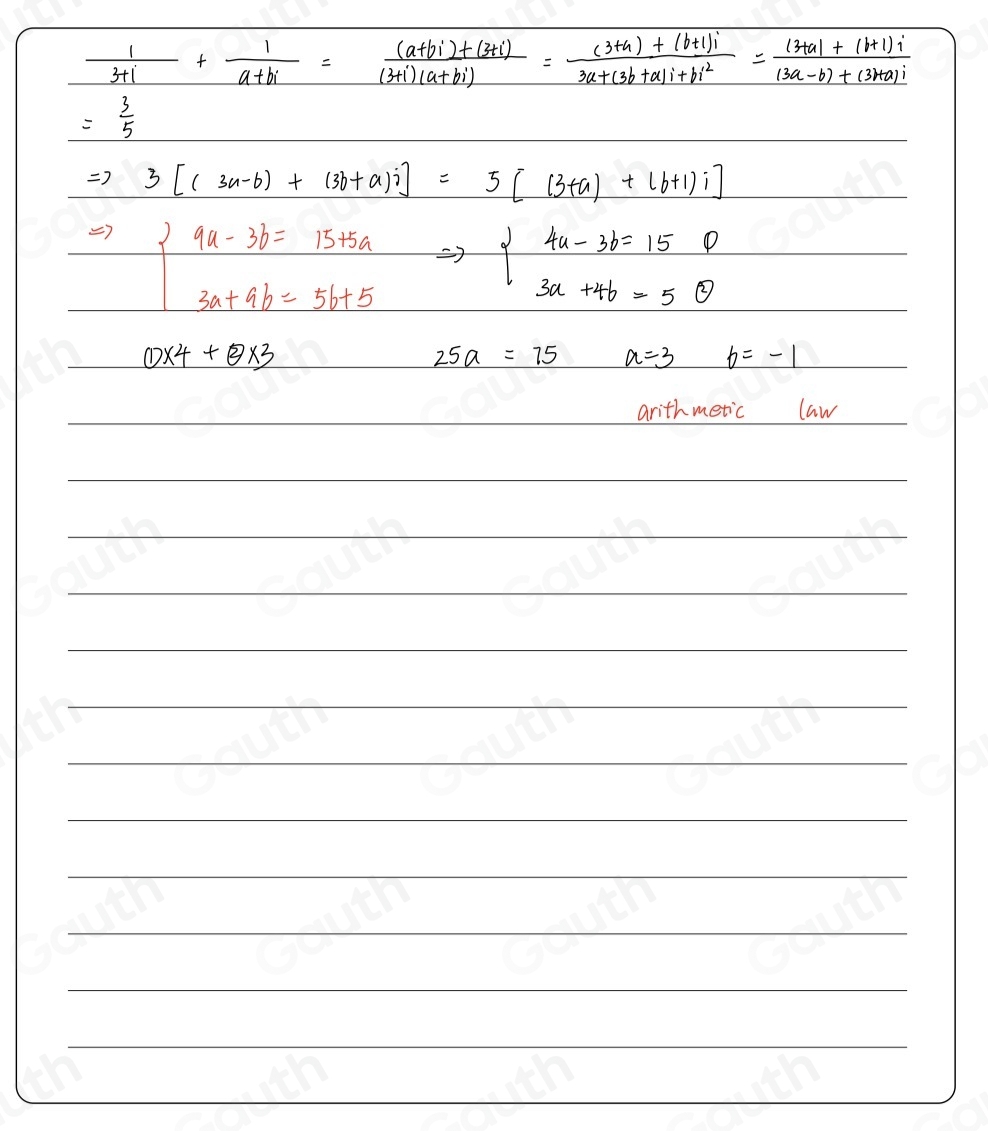 1/(3+i) + 1/(a+bi) = ((a+bi)+(3+i))/((3+i)(a+bi)) = ((3+a)+(b+1)i)/(3a+(3b+a)i+bi²) = ((3+a)+(b+1)i)/((3a-b)+(3b+a)i)
= 3/5
=> 3[(3a-b) + (3b+a)i] = 5[(3+a) + (b+1)i]
=> { 9a-3b= 15+5a => { 4a-3b=15 ①
3a+9b= 5b+5 3a+4b=5 ②
①×4 + ②×3 25a = 75 a=3 b=-1
arithmetic law